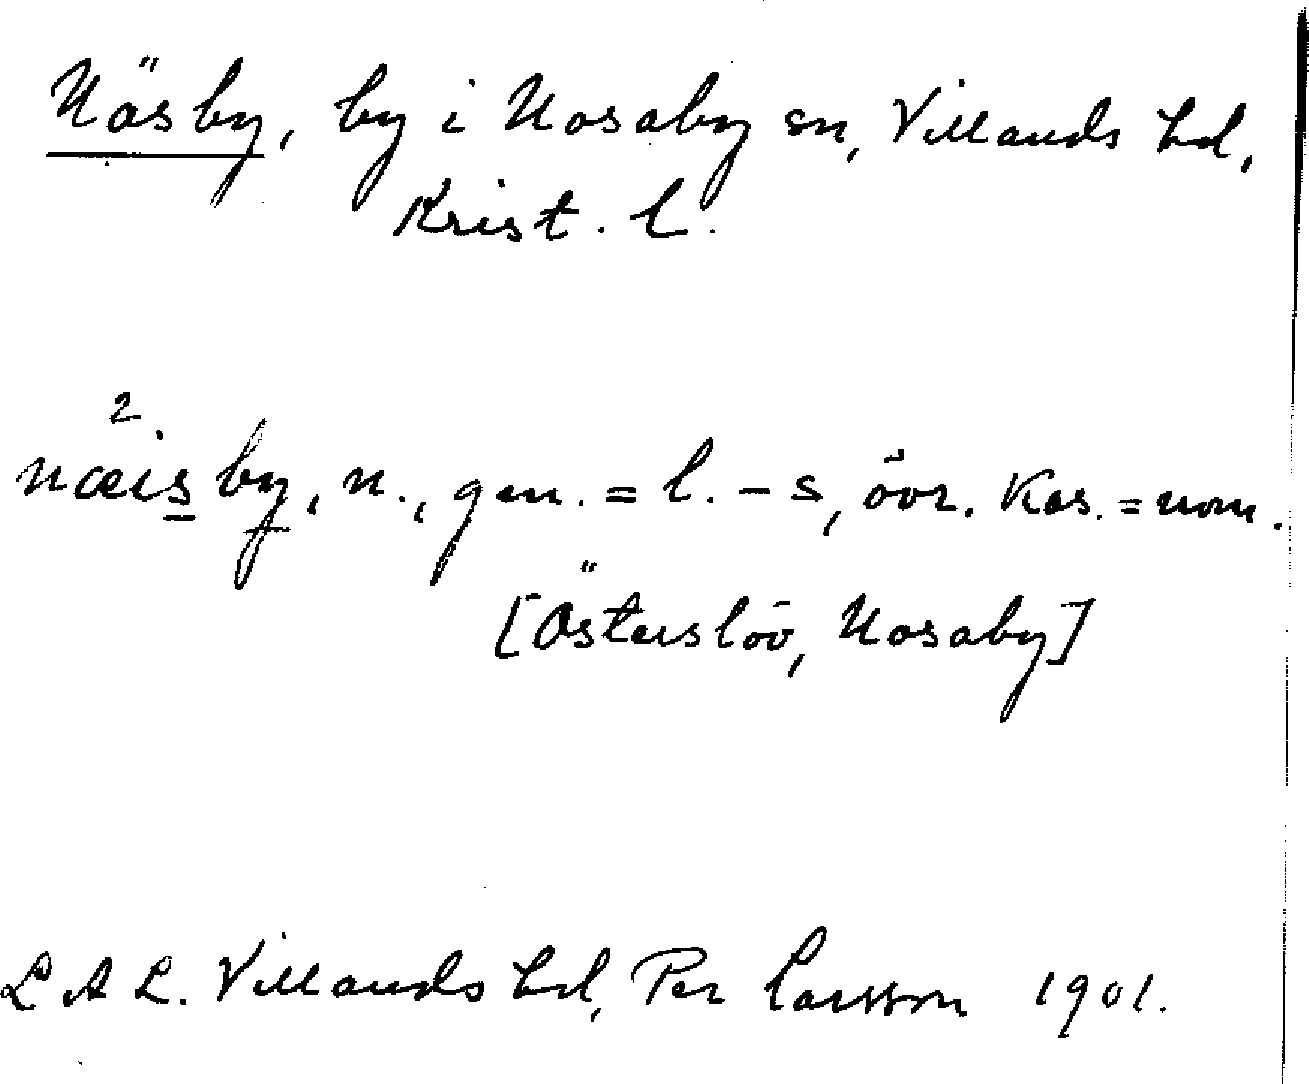 Näsby, by i Nosaby sn, Villands hd,
Krist. l.
2
næisby, n., gen. = l. - s, övr. Kas. = nom.
[Österslöv, Nosaby]
L A L. Villands hd, Per Larsson 1901.